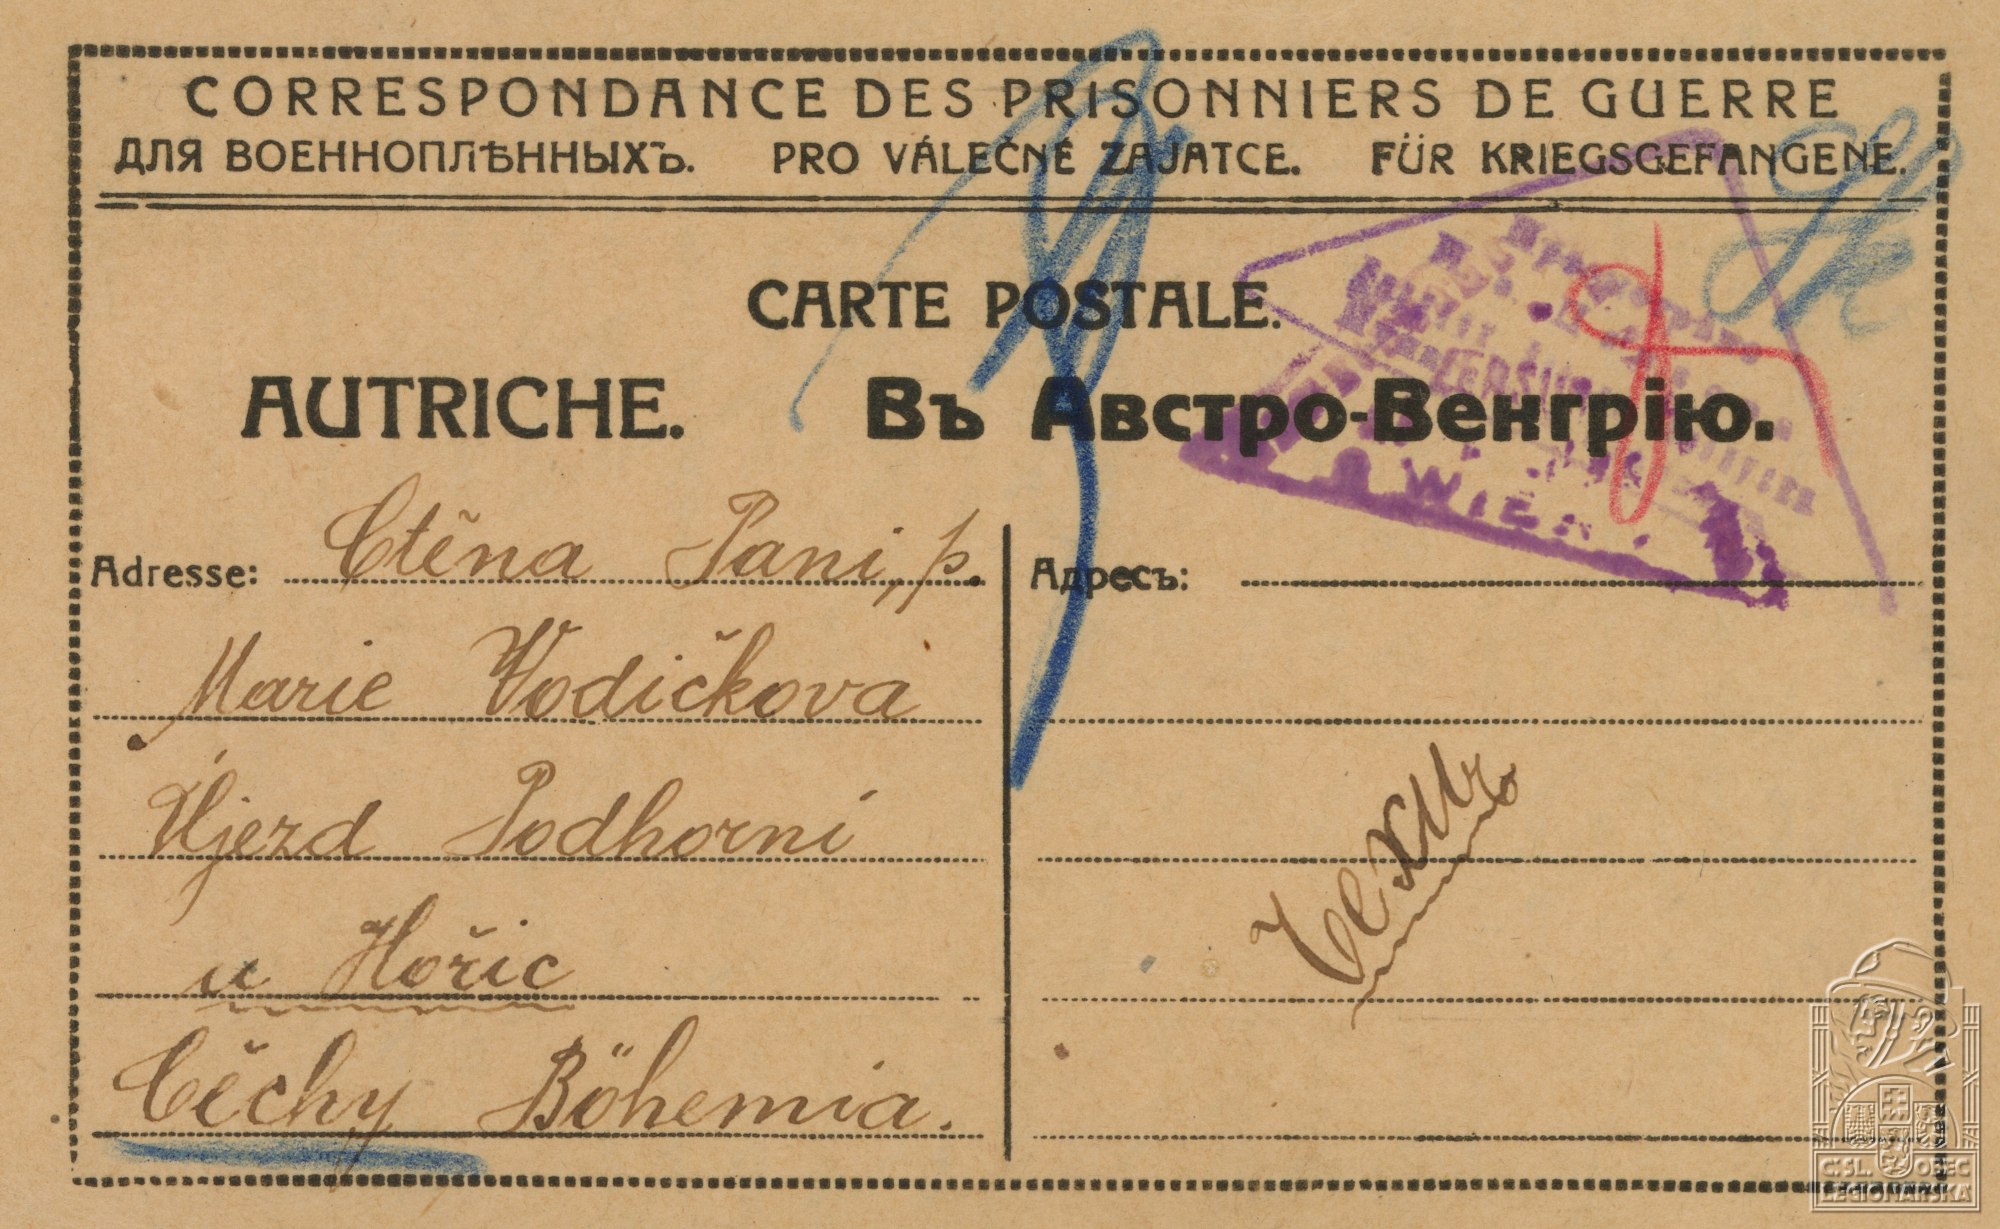 CORRESPONDANCE DES PRISONNIERS DE GUERRE
ДЛЯ ВОЕННОПЛѢННЫХЪ. PRO VÁLEČNÉ ZAJATCE. FÜR KRIEGSGEFANGENE.
CARTE POSTALE.
AUTRICHE. Въ Австро-Венгрію.
WIEN
Adresse: Ctěna Pani, p.
Marie Vodičkova
Ujezd Podhorni
u Hořic
Čechy Böhemia.
Адресъ:
Чехія
Č SL. OBEC
LEGIONÁŘSKÁ